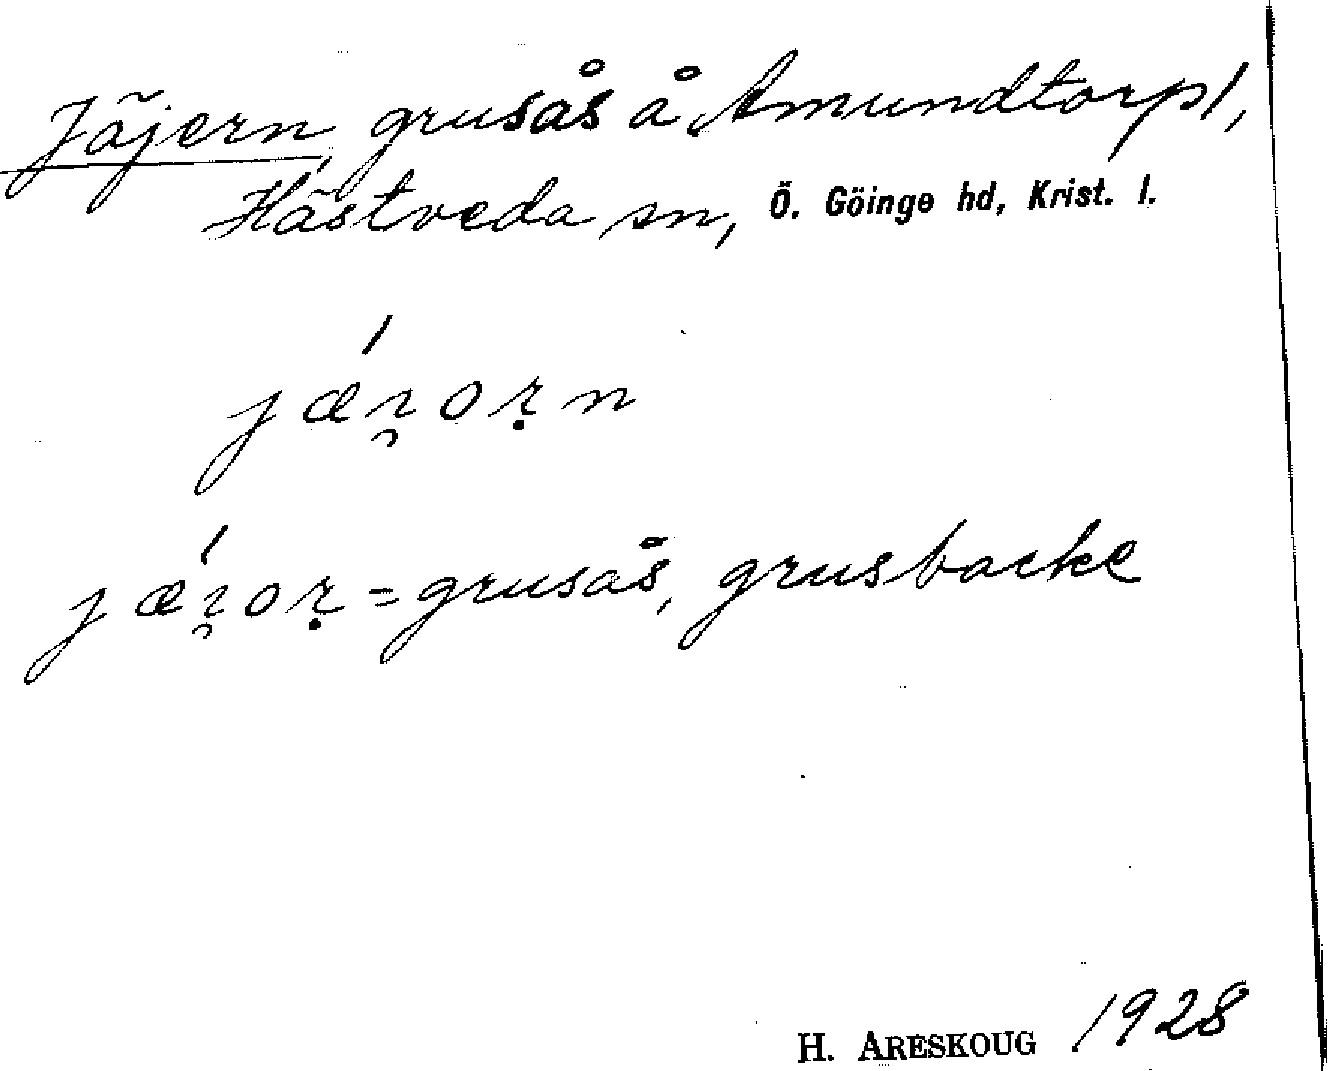 Jäjern, grusås å Amundtorp 1,
Hästveda sn, Ö. Göinge hd, Krist. l.
jǽɿ̯oɽ̣n
jǽɿ̯oɽ̣ = grusås, grusbacke
H. ARESKOUG 1928